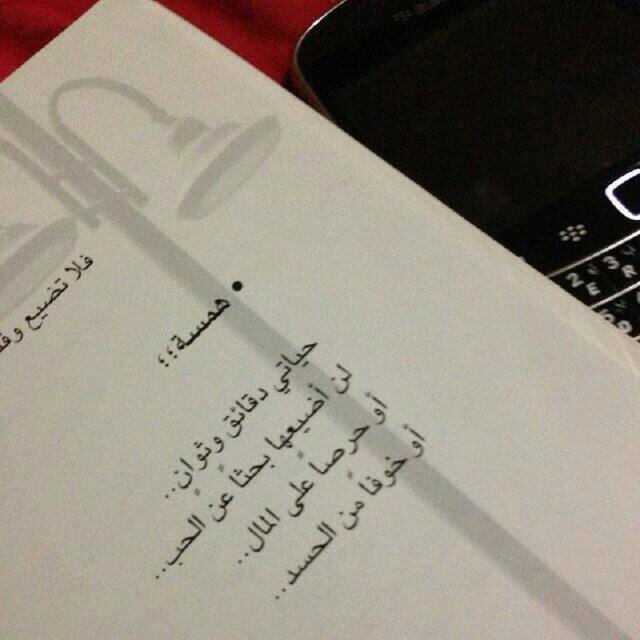 فلا تضيع
• همسة؛؛
حياتي دقائق وثوانٍ..
لن أضيعها بحثاً عن الحب..
أو حرصاً على المال..
أو خوفاً من الحسد..